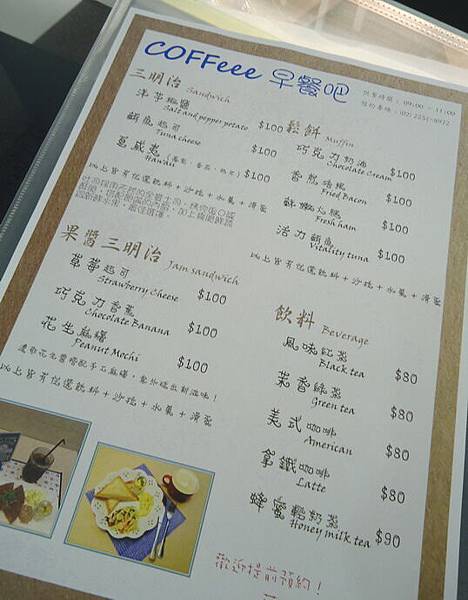 COFFeee 早餐吧
營業時間： 09:00 ~ 11:00
預約專線：02-2251-0972
三明治 Sandwich
洋芋椒鹽
Salt and pepper potato $100
鮪魚起司
Tuna cheese $100
夏威夷
Hawaii $100
以上皆有任選飲料＋沙拉＋水果＋滑蛋
果醬三明治 Jam sandwich
草莓起司
Strawberry Cheese $100
巧克力香蕉
Chocolate Banana $100
花生麻糬
Peanut Mochi $100
濃郁花生醬搭配手工麻糬，意外碰出新滋味！
以上皆有任選飲料＋沙拉＋水果＋滑蛋
鬆餅 Muffin
巧克力奶油
Chocolate Cream $100
香煎培根
Fried Bacon $100
鮮嫩火腿
Fresh ham $100
活力鮪魚
Vitality tuna $100
以上皆有任選飲料＋沙拉＋水果＋滑蛋
飲料 Beverage
風味紅茶
Black tea $80
茉香綠茶
Green tea $80
美式咖啡
American $80
拿鐵咖啡
Latte $80
蜂蜜鬆奶茶
Honey milk tea $90
歡迎提前預約！